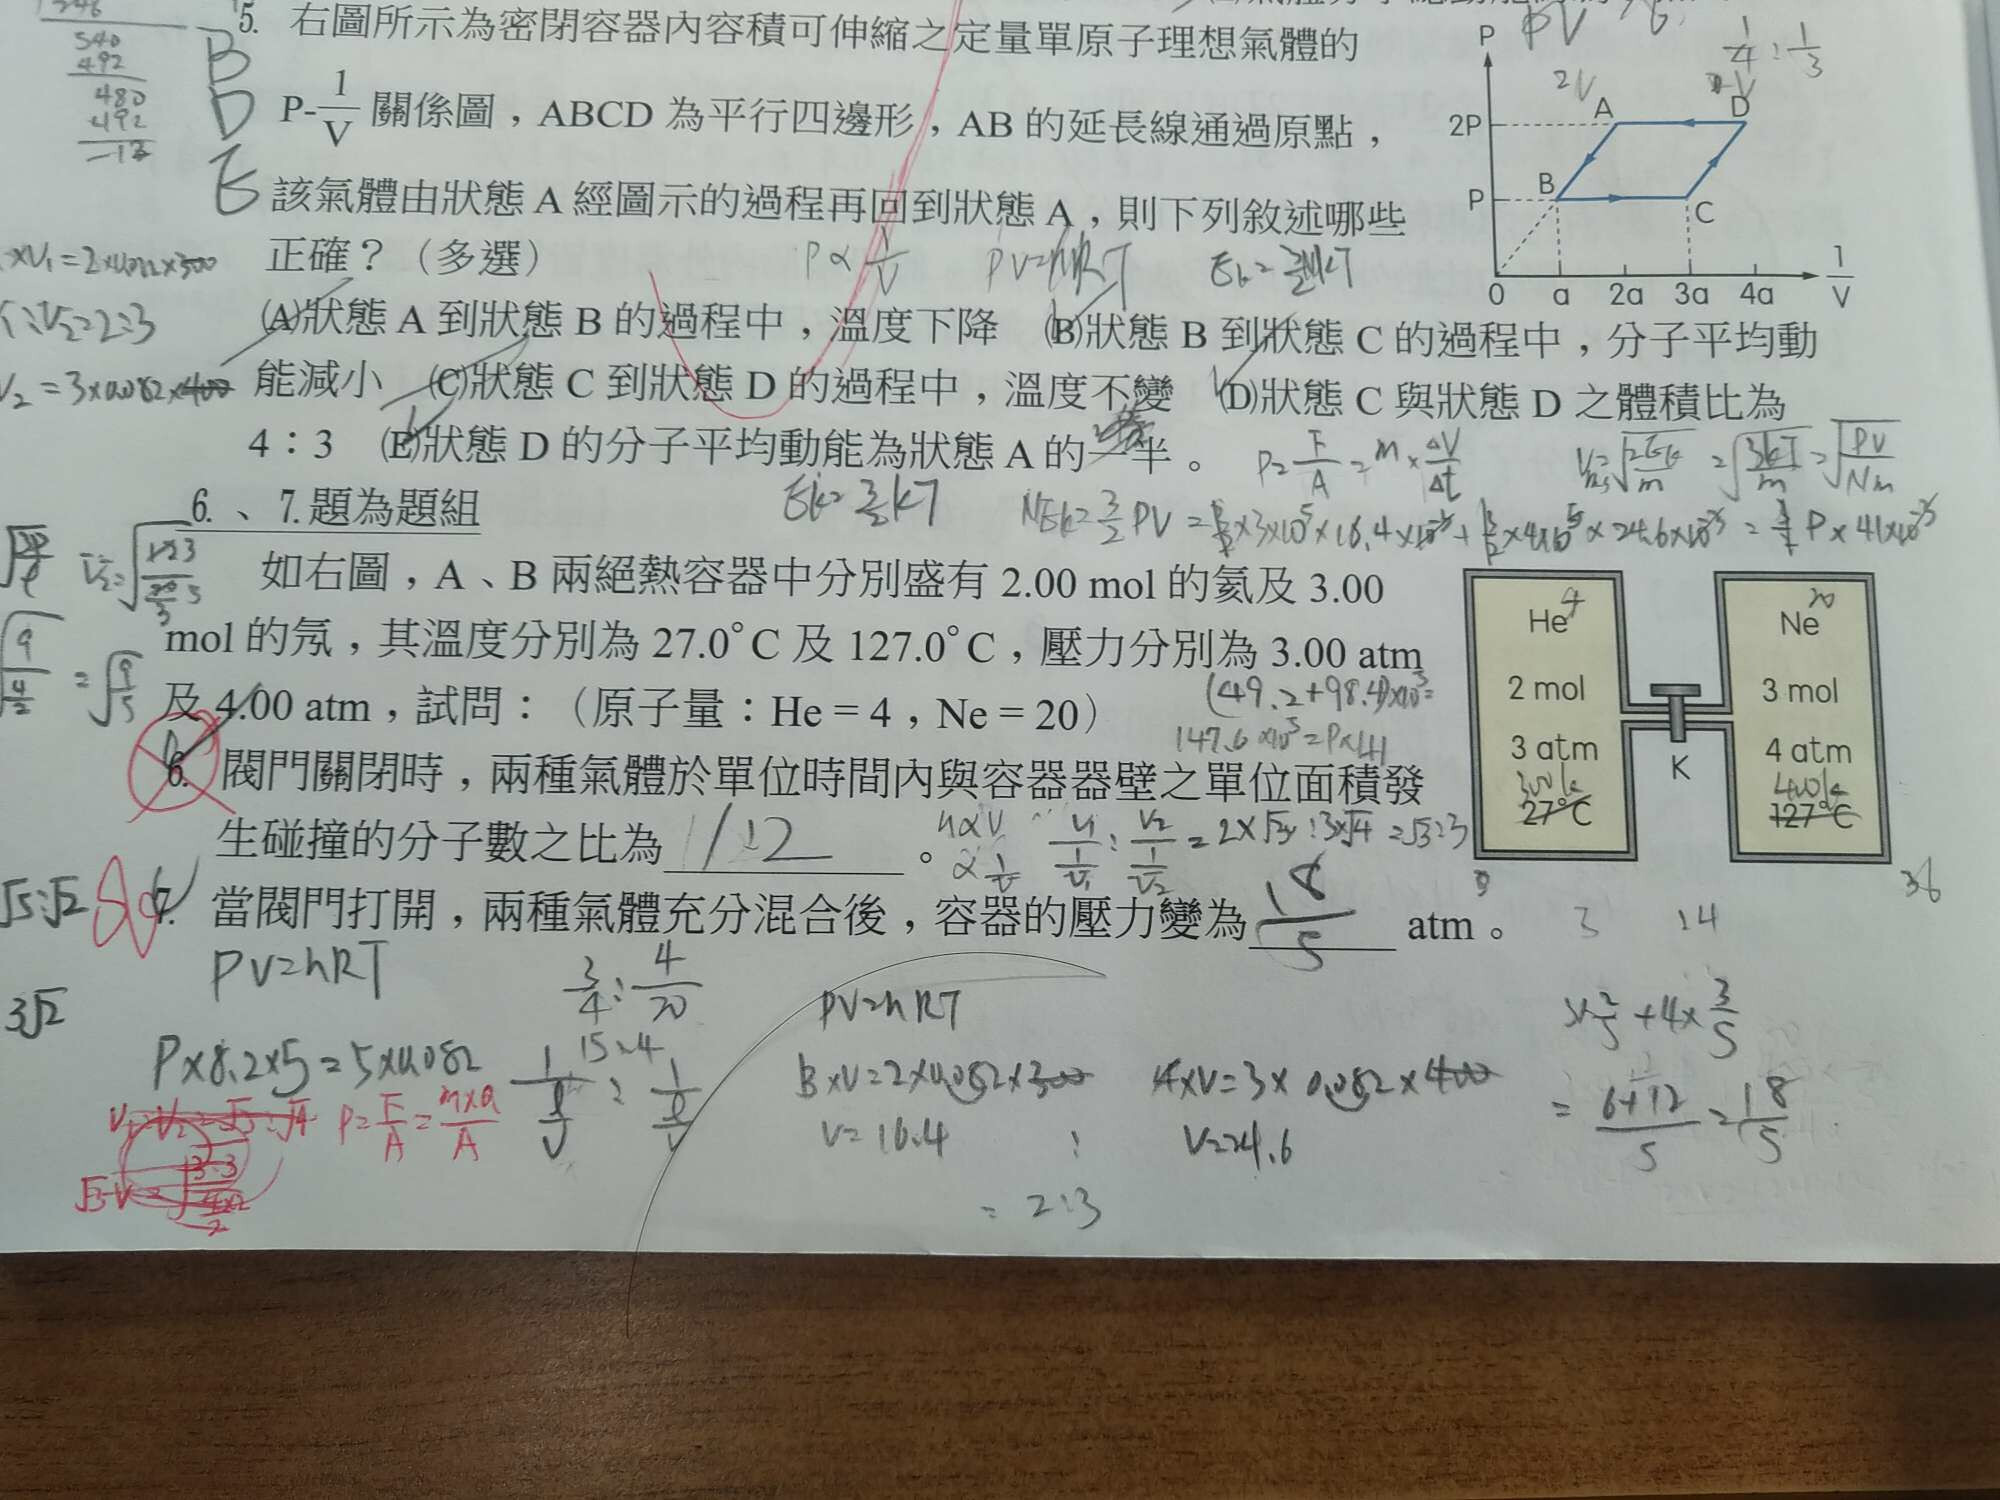 5. 右圖所示為密閉容器內容積可伸縮之定量單原子理想氣體的
P-1/V 關係圖，ABCD 為平行四邊形，AB 的延長線通過原點，
該氣體由狀態 A 經圖示的過程再回到狀態 A，則下列敘述哪些
正確？（多選）
(A)狀態 A 到狀態 B 的過程中，溫度下降 (B)狀態 B 到狀態 C 的過程中，分子平均動
能減小 (C)狀態 C 到狀態 D 的過程中，溫度不變 (D)狀態 C 與狀態 D 之體積比為
4：3 (E)狀態 D 的分子平均動能為狀態 A 的一半。
B
D
E
P
2P
P
A
D
B
C
0 a 2a 3a 4a 1/V
PV
1/4 : 1/3
2V
P∝1/V PV=nRT
540
492
480
492
V₂ = 3×0.082×400
P=F/A=m×ΔV/Δt
6.、7.題為題組
Ek=3/2kT
如右圖，A、B 兩絕熱容器中分別盛有 2.00 mol 的氦及 3.00
mol 的氖，其溫度分別為 27.0°C 及 127.0°C，壓力分別為 3.00 atm
及 4.00 atm，試問：（原子量：He = 4，Ne = 20）
(49.2+98.4)×10⁻³=
6. 閥門關閉時，兩種氣體於單位時間內與容器器壁之單位面積發
生碰撞的分子數之比為 1:2 。
7. 當閥門打開，兩種氣體充分混合後，容器的壓力變為 18/5 atm。
He 4
2 mol
3 atm
300k
27°C
K
Ne 20
3 mol
4 atm
400k
127°C
3 :4
36
√5:√2
3√2
PV=nRT
3/4 : 4/20
15:4
P×8.2×5=5×0.082
P=F/A=m×a/A
PV=nRT
3×V=2×0.082×300
V=16.4
:
4×V=3×0.082×400
V=24.6
= 2:3
3×2/5+4×3/5
= 6+12/5 = 18/5